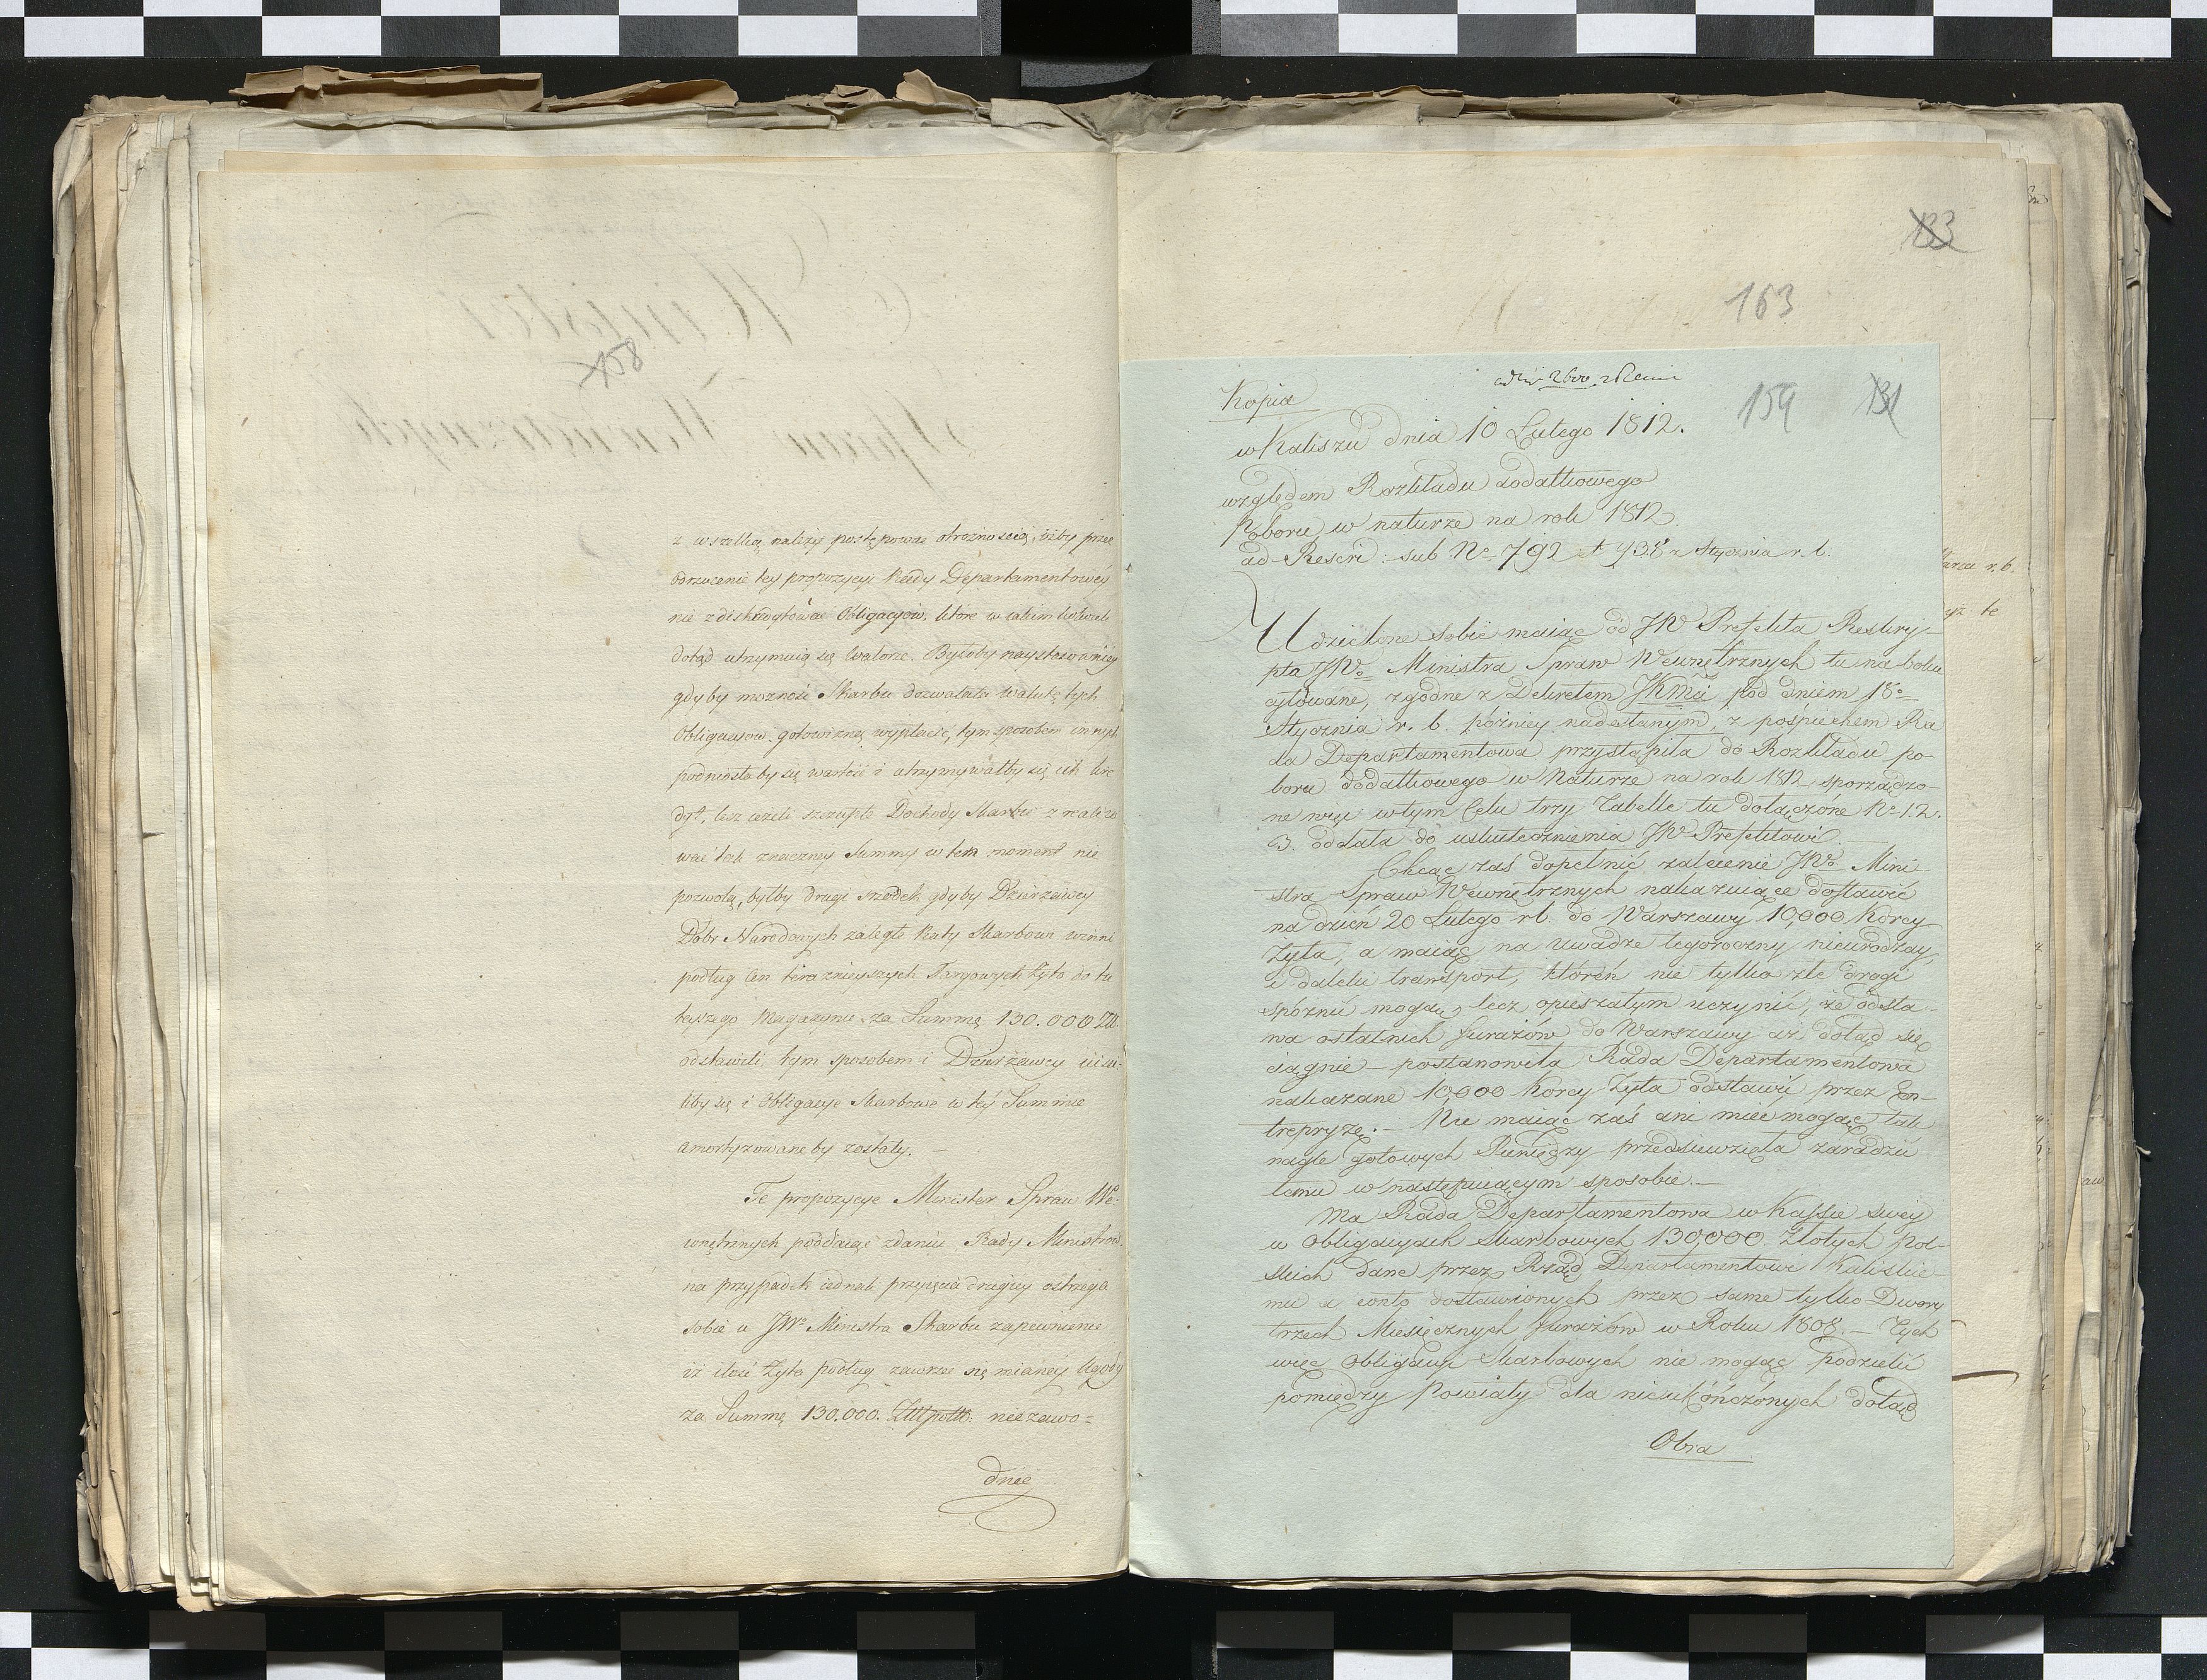 158
z wszelką należy postępować otrożnością, iżby przez
odrzucenie tey propozycyi Rady Departamentowey
nie zdeskredytować Obligacyów, które w takim
dotąd utrzymuią się walorze. Byłoby naystosowniey
gdyby możność Skarbu dozwalała walutę tych
Obligacyów gotowizną wypłacić, tym sposobem innych
podniosłaby się wartość i utrzymywałby się ich kre
dyt, lecz ieżeli szczupłe Dochody Skarbu z realizo
wać tak znaczney Summy w ten moment nie
pozwolą, byłby drugi srzodek gdyby Dzierżawcy
Dóbr Narodowych zaległe Raty Skarbowi winni
podług Cen teraznieyszych Targowych Żyto do tu
teyszego Magazynu za Summę 130.000 Złł.
odstawili tym sposobem i Dzierżawcy uiści-
liby się i Obligacye Skarbowe w tey Summie
amortyzowane by zostały. —
Te propozycye Minister Spraw We-
wnętrznych poddaiąc zdaniu Rady Ministrów
na przypadek iednak przyięcia drugiey ostrzega
sobie u JWo Ministra Skarbu zapewnienie
iż ilość Żyta podług zawrzeć się mianey Ugody
za Summę 130.000. Złłpolls. niezawo=
dnie
133
163
Kopia
159 131
w Kaliszu dnia 10 Lutego 1812.
względem Rozkładu dodatkowego
Poboru w naturze na rok 1812
ad Rescri: sub No 792 et 938 z Stycznia r. b.
Udzielone sobie maiąc od JW Prefekta Reskry-
pta JWo Ministra Spraw Wewnętrznych tu na boku
cytowane, zgodne z Dekretem JKMci pod dniem 18o
Stycznia r. b. pózniey nadesłanym, z pośpiechem Ra
da Departamentowa przystąpiła do Rozkładu po-
boru dodatkowego w Naturze na rok 1812 sporządzo-
ne więc w tym Celu trzy Tabelle tu dołączone No 1. 2.
3. oddała do uskutecznienia JW Prefektowi. —
Chcąc zaś dopełnić zalecenie JWo Mini
stra Spraw Wewnętrznych nakazuiące dostawić
na dzień 20 Lutego rb. do Warszawy 10,000 Korcy
Żyta, a maiąc na uwadze tegoroczny nieurodzay,
i daleki transport, któren nie tylko złe drogi
spóznić mogą, lecz opieszałym uczynić, że odsta-
wa ostatnich furażów do Warszawy aż dotąd się
ciągnie — postanowiła Rada Departamentowa
nakazane 10,000 Korcy Żyta odstawić przez En-
trepryzę. — Nie maiąc zaś ani mieć mogąc tak
nagle gotowych Pieniędzy przedsiewzięła zaradzić
temu w następuiącym sposobie. —
Ma Rada Departamentowa w Kassie swey
w Obligacyach Skarbowych 130,000 Złotych pol-
skich dane przez Rząd Departamentowi Kaliskie-
mu a conto dostawionych przez same tylko Dwory
trzech Miesięcznych furażów w Roku 1808. — Tych
więc Obligacyi Skarbowych nie mogąc podzielić
pomiędzy Powiaty dla nieukończonych dotąd
Obra